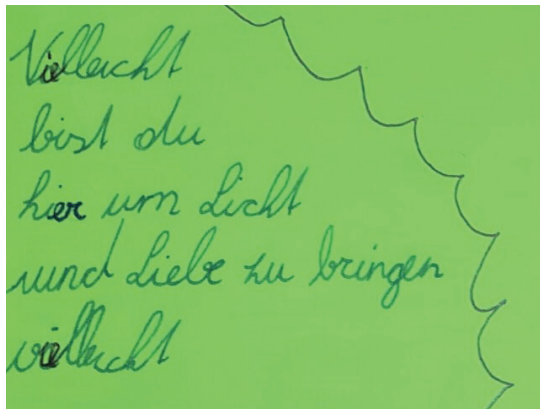 Vielleicht
bist du
hier um Licht
und Liebe zu bringen
vielleicht